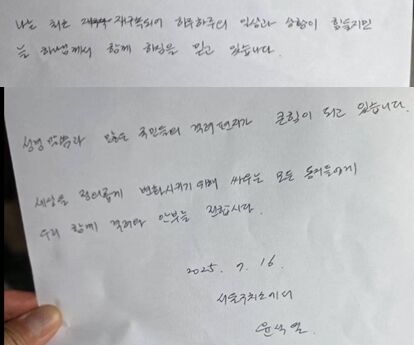 나는 최근 재구속되어 하루하루의 일상과 상황이 힘들지만
늘 하나님께서 함께 하심을 믿고 있습니다.
성경 말씀과 많은 국민들의 격려편지가 큰힘이 되고 있습니다.
세상을 정의롭게 변화시키기 위해 싸우는 모든 동지들에게
우리 함께 격려와 안부를 전합시다.
2025. 7. 16.
서울구치소에서
윤석열